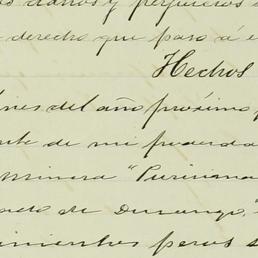 daños y perjuicios
derecho que paso á e
Hechos
ines del año próximo p
te de mi poderda
Minera "Puri
de Durango,"
mientos pesos s